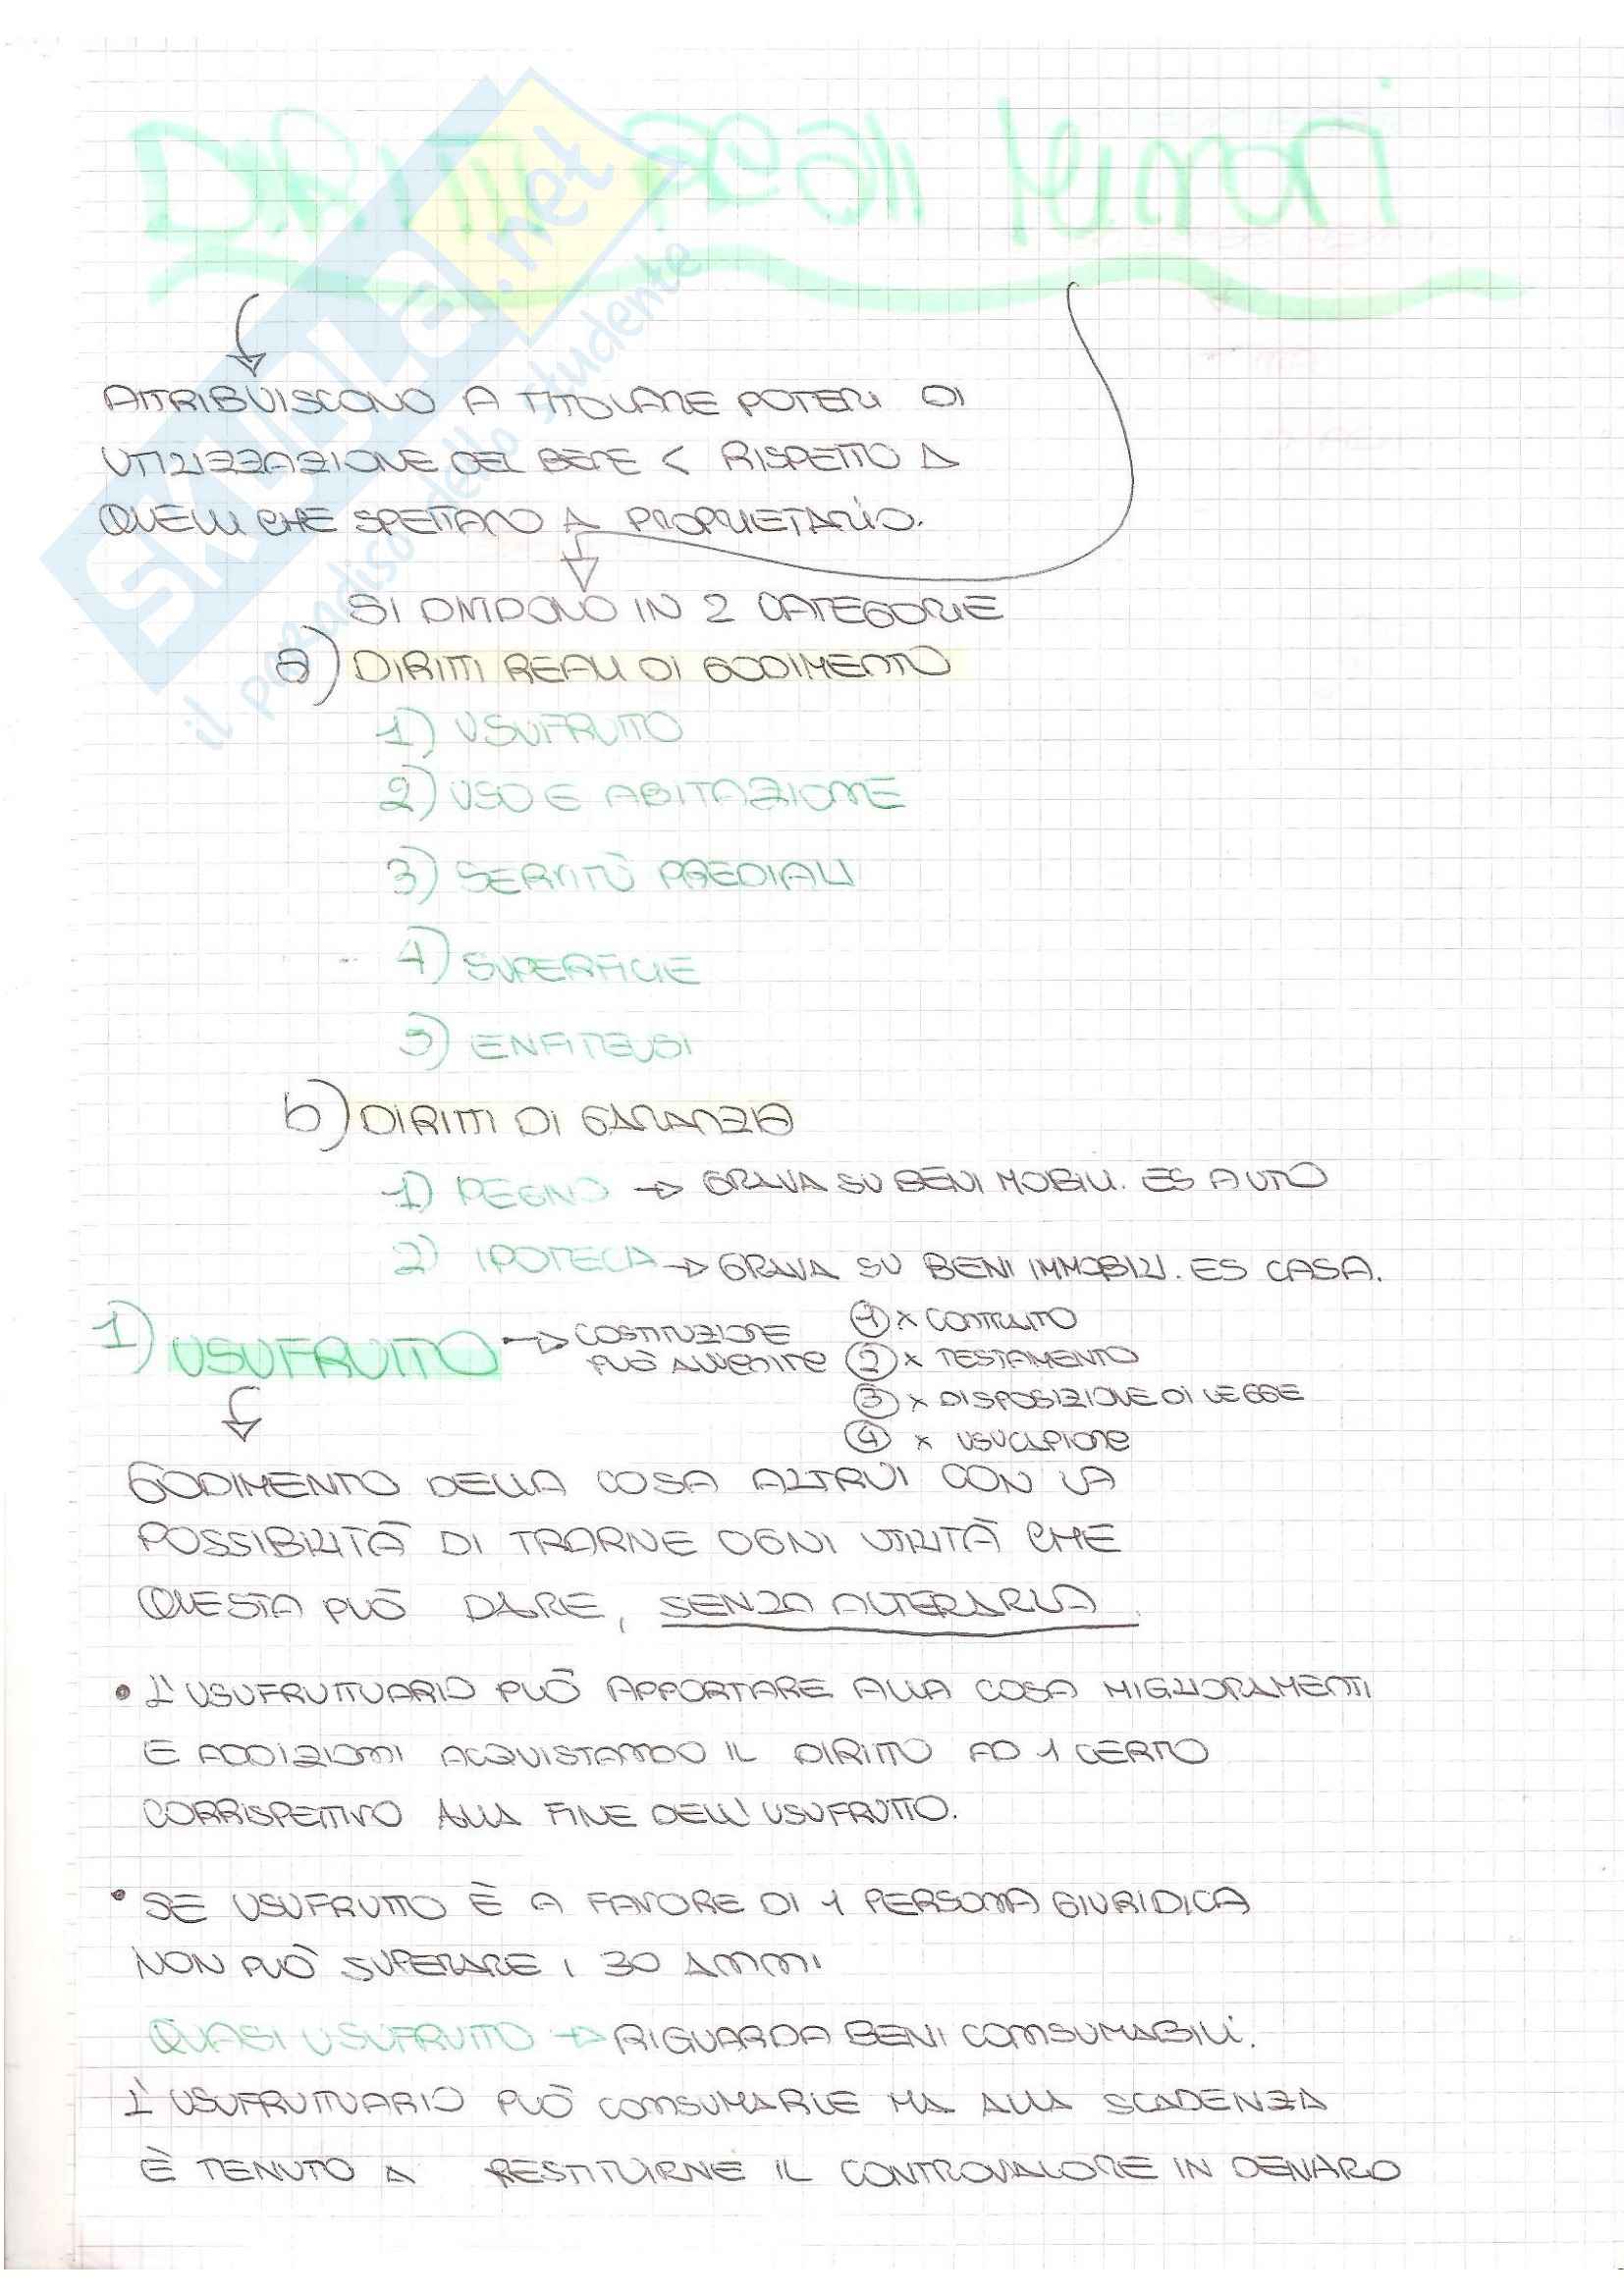 Diritti Reali Minori
ATTRIBUISCONO A TITOLARE POTERI DI
UTILIZZAZIONE DEL BENE < RISPETTO A
QUELLI CHE SPETTANO A PROPRIETARIO.
SI DIVIDONO IN 2 CATEGORIE
a) DIRITTI REALI DI GODIMENTO
1) USUFRUTTO
2) USO E ABITAZIONE
3) SERVITÙ PREDIALI
4) SUPERFICIE
5) ENFITEUSI
b) DIRITTI DI GARANZIA
1) PEGNO → GRAVA SU BENI MOBILI. ES AUTO
2) IPOTECA → GRAVA SU BENI IMMOBILI. ES CASA.
1) USUFRUTTO → COSTITUZIONE PUÒ AVVENIRE
① x CONTRATTO
② x TESTAMENTO
③ x DISPOSIZIONE DI LEGGE
④ x USUCAPIONE
GODIMENTO DELLA COSA ALTRUI CON LA
POSSIBILITÀ DI TRARNE OGNI UTILITÀ CHE
QUESTA PUÒ DARE, SENZA ALTERARLA.
• L'USUFRUTTUARIO PUÒ APPORTARE ALLA COSA MIGLIORAMENTI
E ADDIZIONI ACQUISTANDO IL DIRITTO AD 1 CERTO
CORRISPETTIVO ALLA FINE DELL'USUFRUTTO.
• SE USUFRUTTO È A FAVORE DI 1 PERSONA GIURIDICA
NON PUÒ SUPERARE I 30 ANNI
QUASI USUFRUTTO → RIGUARDA BENI CONSUMABILI.
L'USUFRUTTUARIO PUÒ CONSUMARLE MA ALLA SCADENZA
È TENUTO A RESTITUIRNE IL CONTROVALORE IN DENARO
SKUOLA.net
il paradiso dello studente